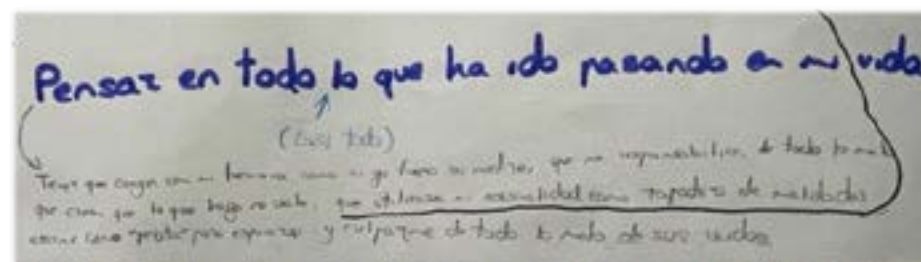 Pensar en todo lo que ha ido pasando en mi vida
(casi todo)
Tener que cargar con mi hermana como si yo fuera su madre, que me responsabilicen de todo lo malo
que crean que lo que hago no vale, que utilizasen mi sexualidad como tapadera de maldades
como para y culparme de todo lo malo de sus vidas